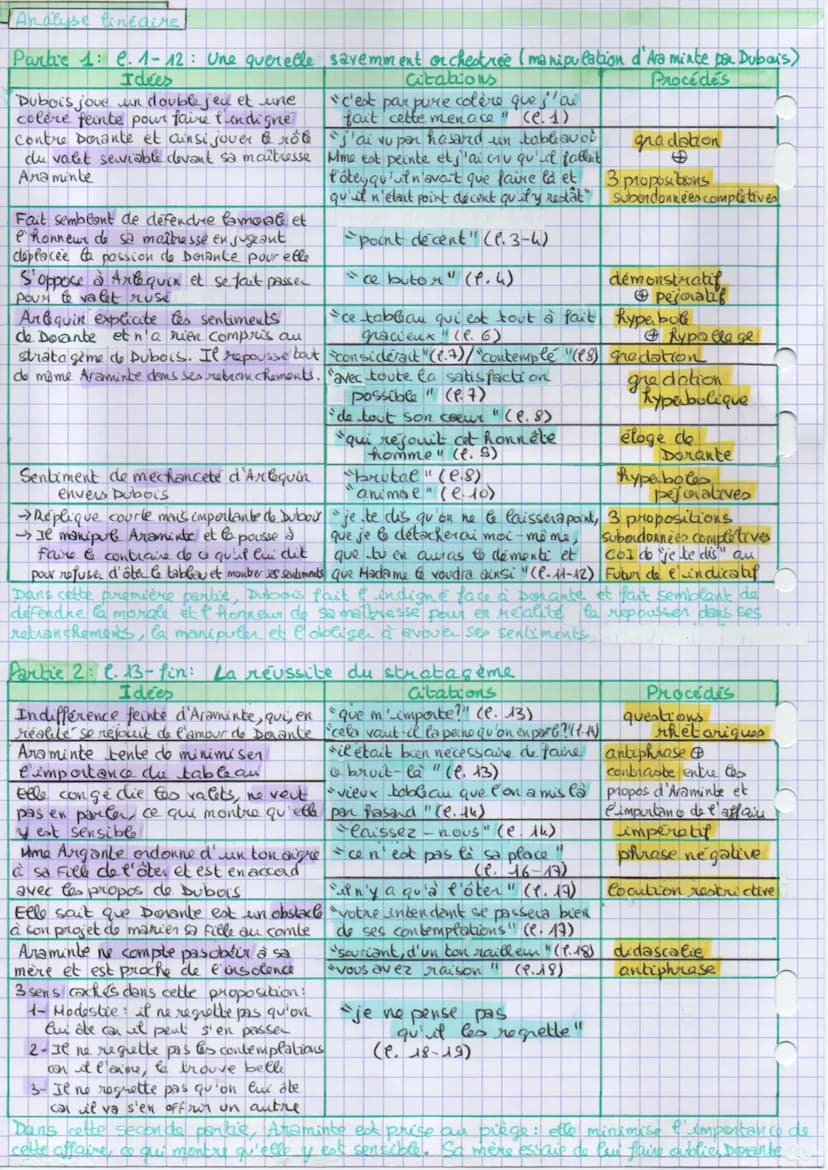 Analyse linéaire
Partie 1: l. 1-12 : Une querelle savemment orchestrée (manipulation d'Araminte par Dubois)
Idées Citations Procédés
Dubois joue un double jeu et une colère feinte pour faire l'indigné contre Dorante et ainsi jouer le rôle du valet serviable devant sa maîtresse Araminte
"c'est par pure colère que j'ai
fait cette menace" (l. 1)
"j'ai vu par hasard un tableau où
Mme est peinte et j'ai cru qu'il fallait
l'ôter, qu'il n'avait que faire là et
qu'il n'était point décent qu'il y restât"
gradation
⊕
3 propositions
subordonnées complétives
Fait semblant de défendre la morale et
l'honneur de sa maîtresse en jugeant
déplacée la passion de Dorante pour elle
"point décent" (l. 3-4)
S'oppose à Arlequin et se fait passer
pour le valet rusé
"ce butor" (l. 4)
démonstratif
⊕ péjoratif
Arlequin explicite les sentiments
de Dorante et n'a rien compris au
stratagème de Dubois. Il repousse tout
de même Araminte dans ses retranchements.
"ce tableau qui est tout à fait
gracieux" (l. 6)
hyperbole
⊕ hypallage
"considérait" (l. 7) / "contemplé" (l. 8) gradation
"avec toute la satisfaction
possible" (l. 7)
"de tout son cœur" (l. 8)
gradation
hyperbolique
"qui réjouit cet honnête
homme" (l. 9)
éloge de
Dorante
Sentiment de méchanceté d'Arlequin
envers Dubois
"brutal" (l. 8)
"animal" (l. 10)
hyperboles
péjoratives
→ Réplique courte mais importante de Dubois
→ Il manipule Araminte et la pousse à
faire le contraire de ce qu'il lui dit
pour refuser d'ôter le tableau et montrer ses sentiments
"je te dis qu'on ne le laissera point,
que je le détacherai moi-même,
que tu en auras le démenti et
que Madame le voudra ainsi" (l. 11-12)
3 propositions
subordonnées complétives
COI de "je te dis" au
Futur de l'indicatif
Dans cette première partie, Dubois fait l'indigné face à Dorante et fait semblant de
défendre la morale et l'honneur de sa maîtresse pour en réalité la repousser dans ses
retranchements, la manipuler et l'obliger à avouer ses sentiments
Partie 2: l. 13-fin: La réussite du stratagème
Idées Citations Procédés
Indifférence feinte d'Araminte, qui, en
réalité se réjouit de l'amour de Dorante
"que m'importe?" (l. 13)
"cela vaut-il la peine qu'on en parle?" (l. 14)
questions
rhétoriques
Araminte tente de minimiser
l'importance du tableau
"il était bien nécessaire de faire
ce bruit-là" (l. 13)
antiphrase ⊕
contraste entre les
propos d'Araminte et
l'importance de l'affaire
Elle congédie les valets, ne veut
pas en parler, ce qui montre qu'elle
y est sensible
"vieux tableau que l'on a mis là
par hasard" (l. 14)
"laissez-nous" (l. 14)
impératif
Mme Argante ordonne d'un ton aigre
à sa fille de l'ôter et est en accord
avec les propos de Dubois
"ce n'est pas là sa place"
(l. 16-17)
phrase négative
"il n'y a qu'à l'ôter" (l. 17)
locution restrictive
Elle sait que Dorante est un obstacle
à son projet de marier sa fille au comte
"votre intendant se passera bien
de ses contemplations" (l. 17)
Araminte ne compte pas obéir à sa
mère et est proche de l'insolence
"souriant, d'un ton railleur" (l. 18)
"vous avez raison" (l. 18)
didascalie
antiphrase
3 sens cachés dans cette proposition:
1- Modestie: il ne regrette pas qu'on
lui ôte car il peut s'en passer
2- Il ne regrette pas les contemplations
car il l'aime, la trouve belle
3- Il ne regrette pas qu'on lui ôte
car il va s'en offrir un autre
"je ne pense pas
qu'il les regrette"
(l. 18-19)
Dans cette seconde partie, Araminte est prise au piège: elle minimise l'importance de
cette affaire, ce qui montre qu'elle y est sensible. Sa mère essaie de lui faire oublier Dorante